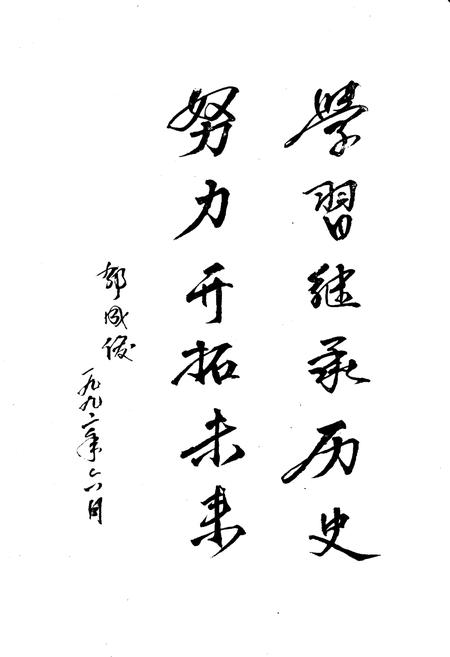 學習继承历史
努力开拓未来
成俊
一九九二年六月